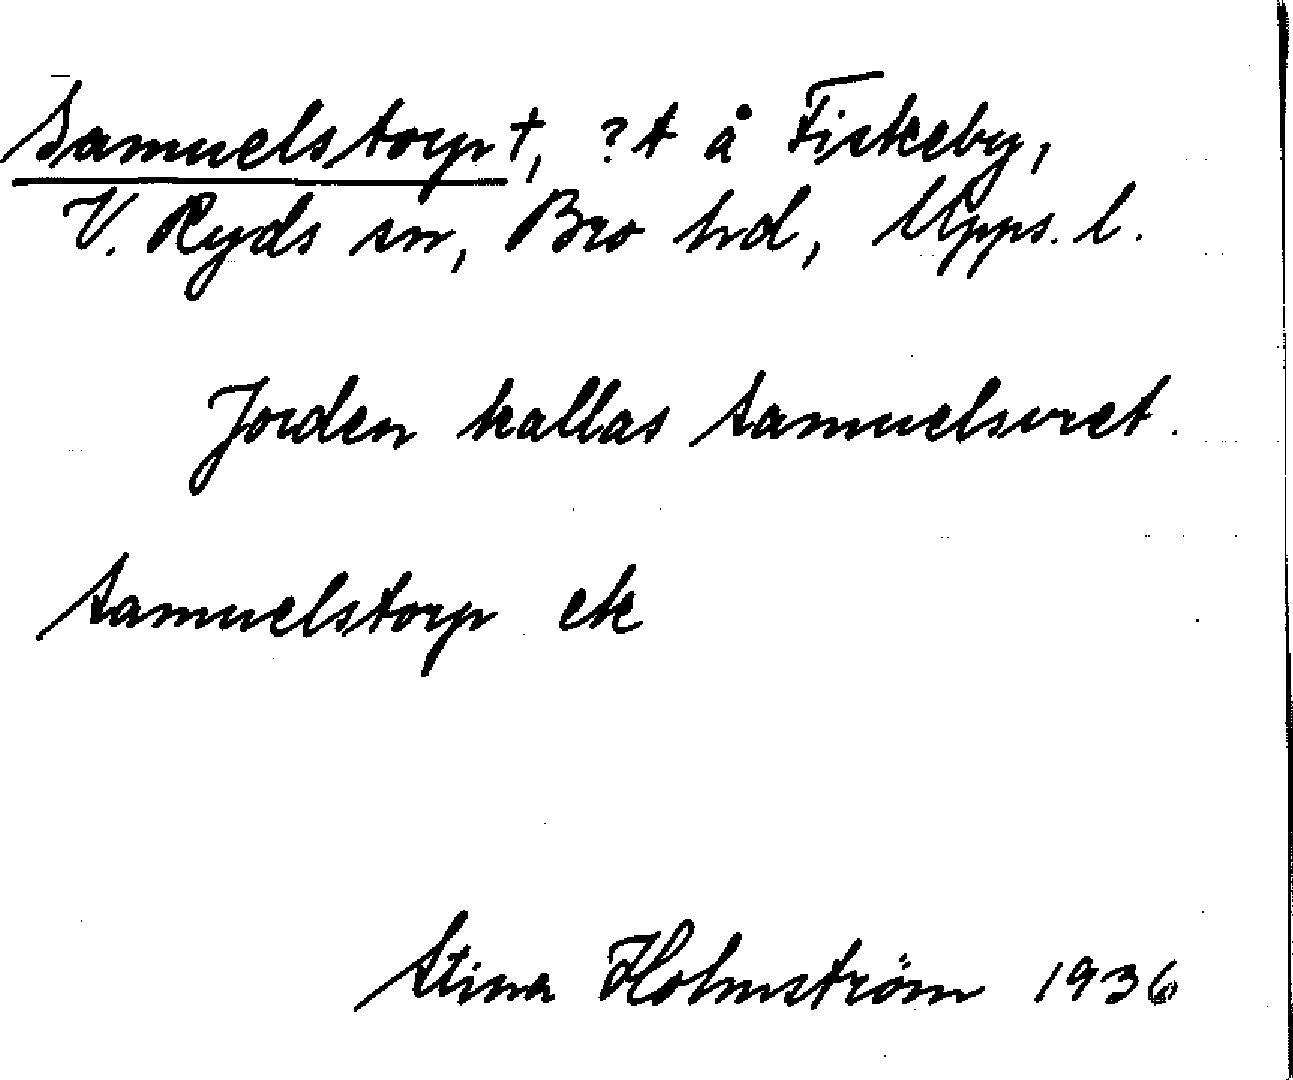 Samuelstorp †, ? t å Fiskeby,
V. Ryds sn, Bro hd, Upps. l.
Jorden kallas Samuelsvret.
Samuelstorp ek
Stina Holmström 1936